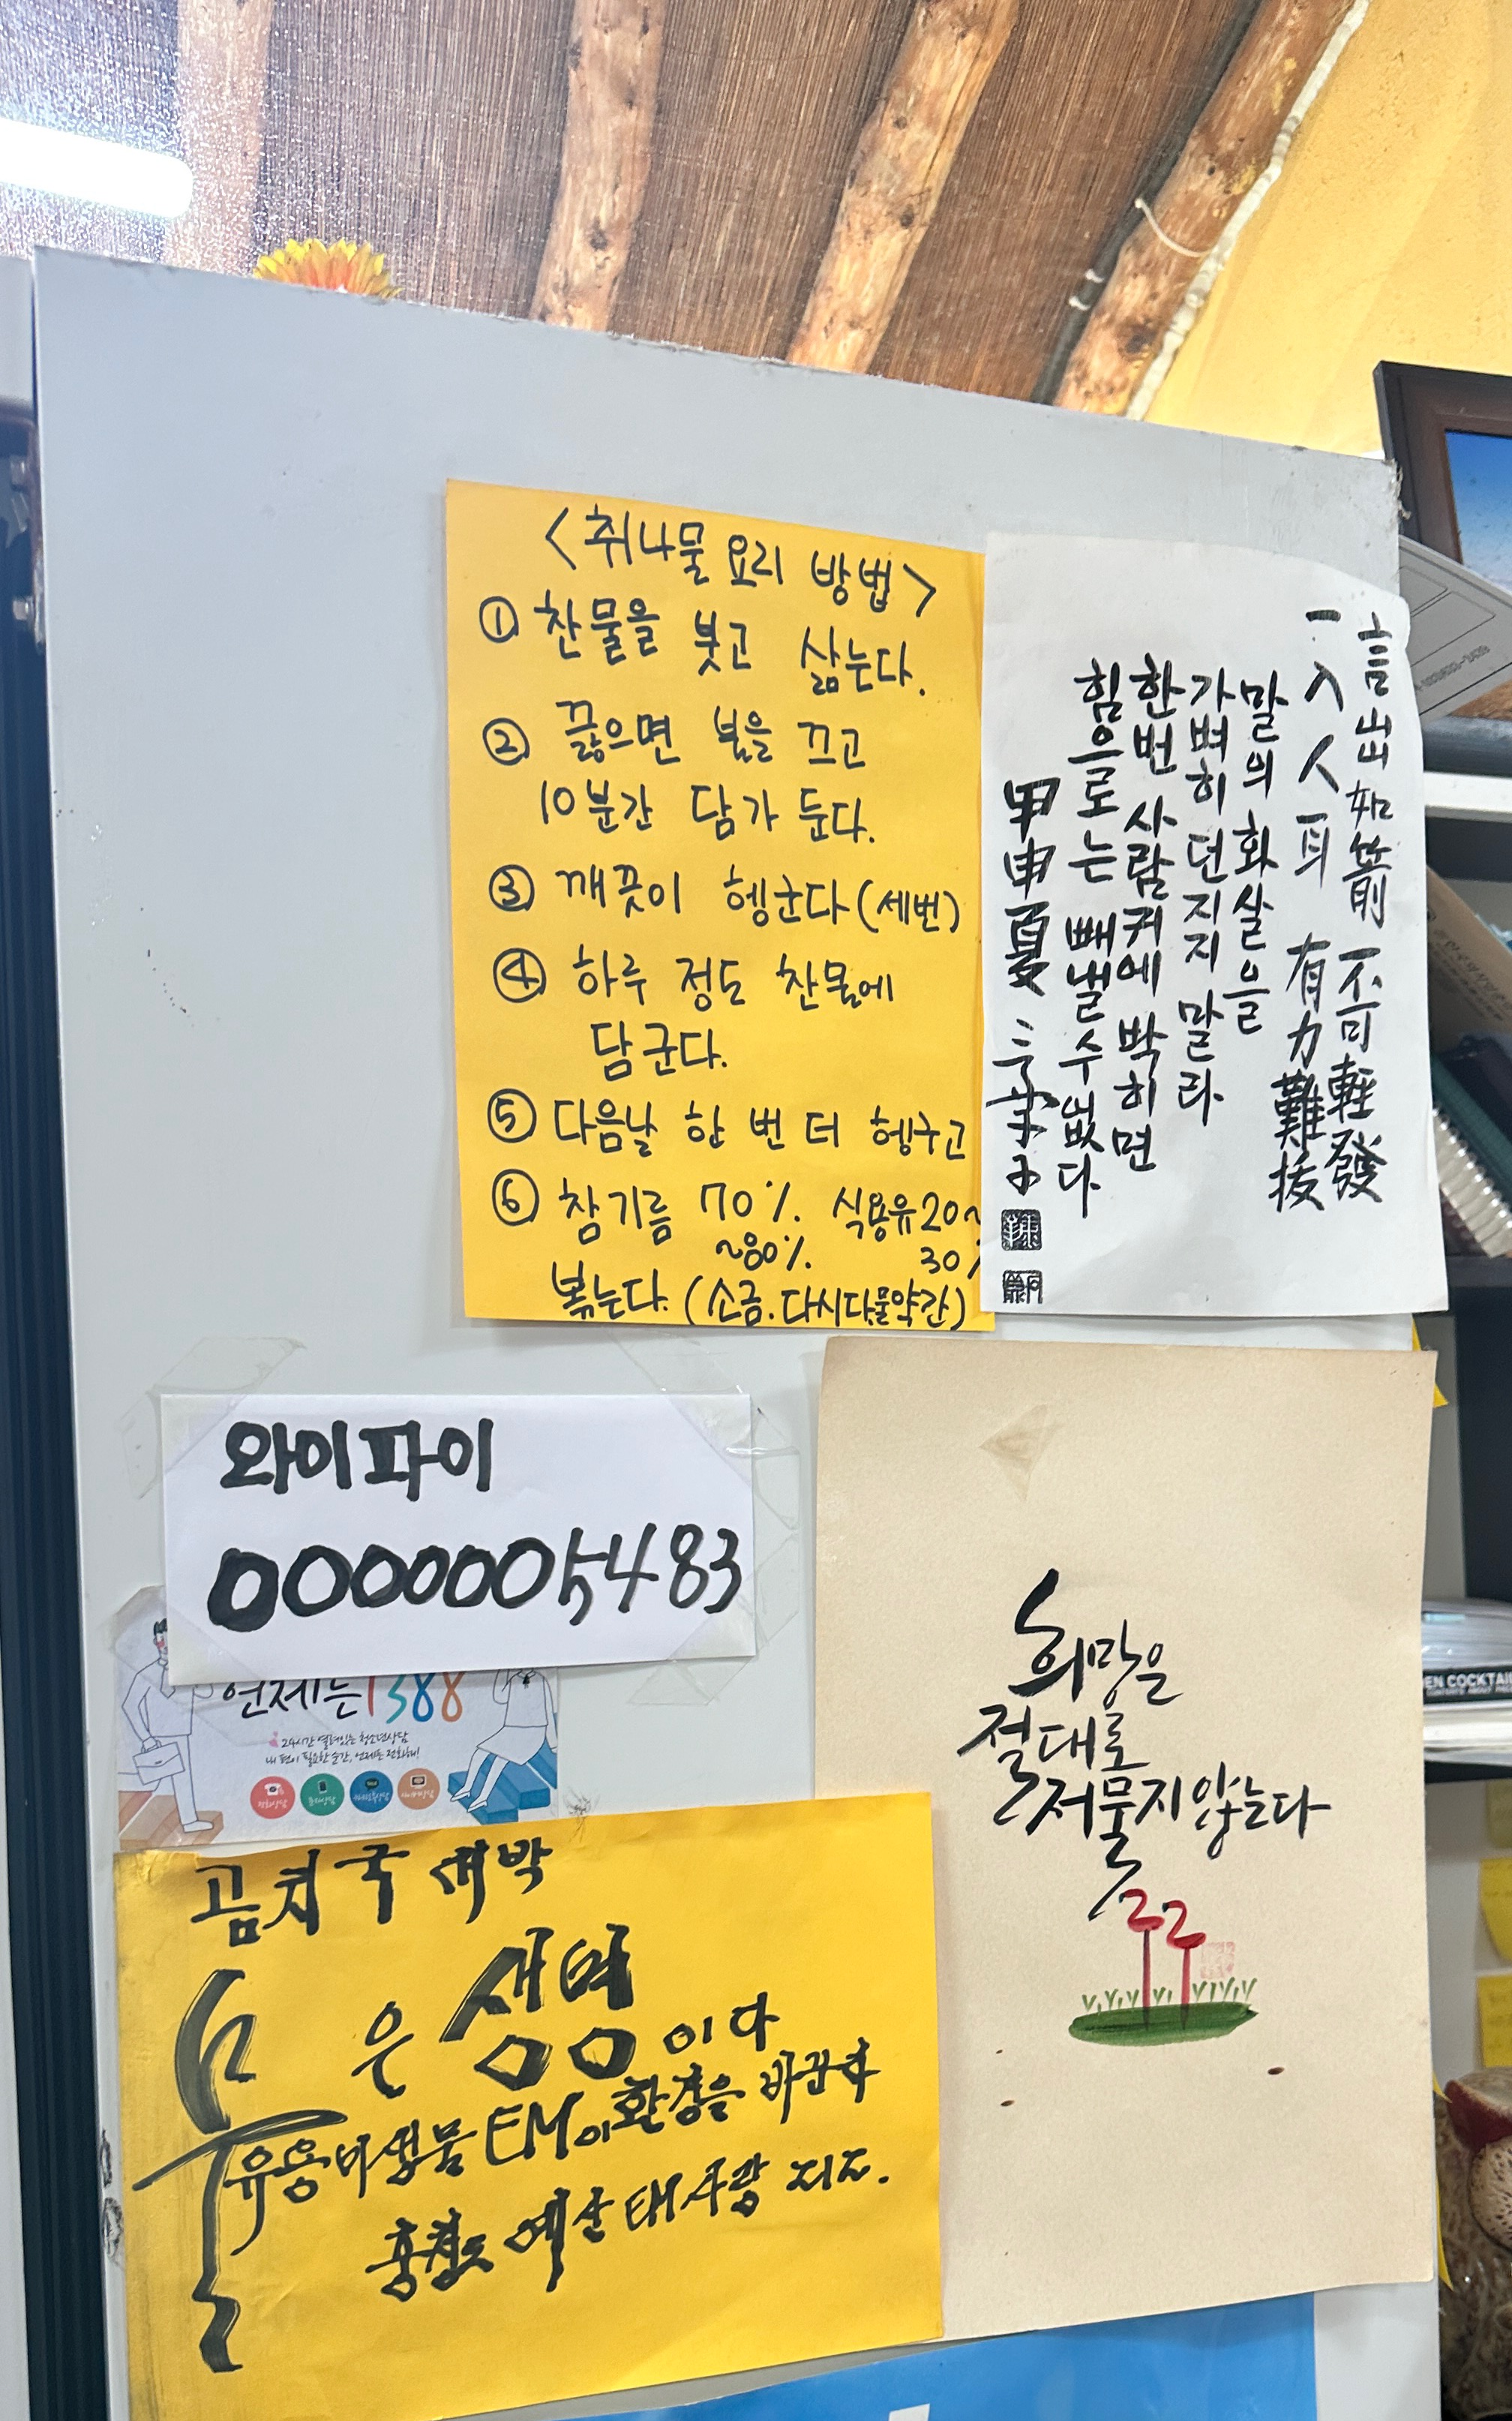 <취나물 요리 방법>
① 찬물을 붓고 삶는다.
② 끓으면 불을 끄고
10분간 담가 둔다.
③ 깨끗이 헹군다(세번)
④ 하루 정도 찬물에
담군다.
⑤ 다음날 한 번 더 헹구고
⑥ 참기름 70% 식용유20~
~80% 30%
볶는다. (소금.다시다,물약간)
言出如箭 不可軽發
一入人耳 有力難拔
말의 화살을
가벼히 던지지 말라
한번 사람귀에 박히면
힘으로는 빼낼수없다
甲申夏
와이파이
0000005483
언제나는1388
24시간 열려있는 청소년상담
내 편이 필요한 순간, 언제든 전화해!
전화상담
희망은
절대로
저물지않는다
곰치국 대박
물은 생명이다
유용미생물 EM이 환경을 바꾼다
EN COCKTAI